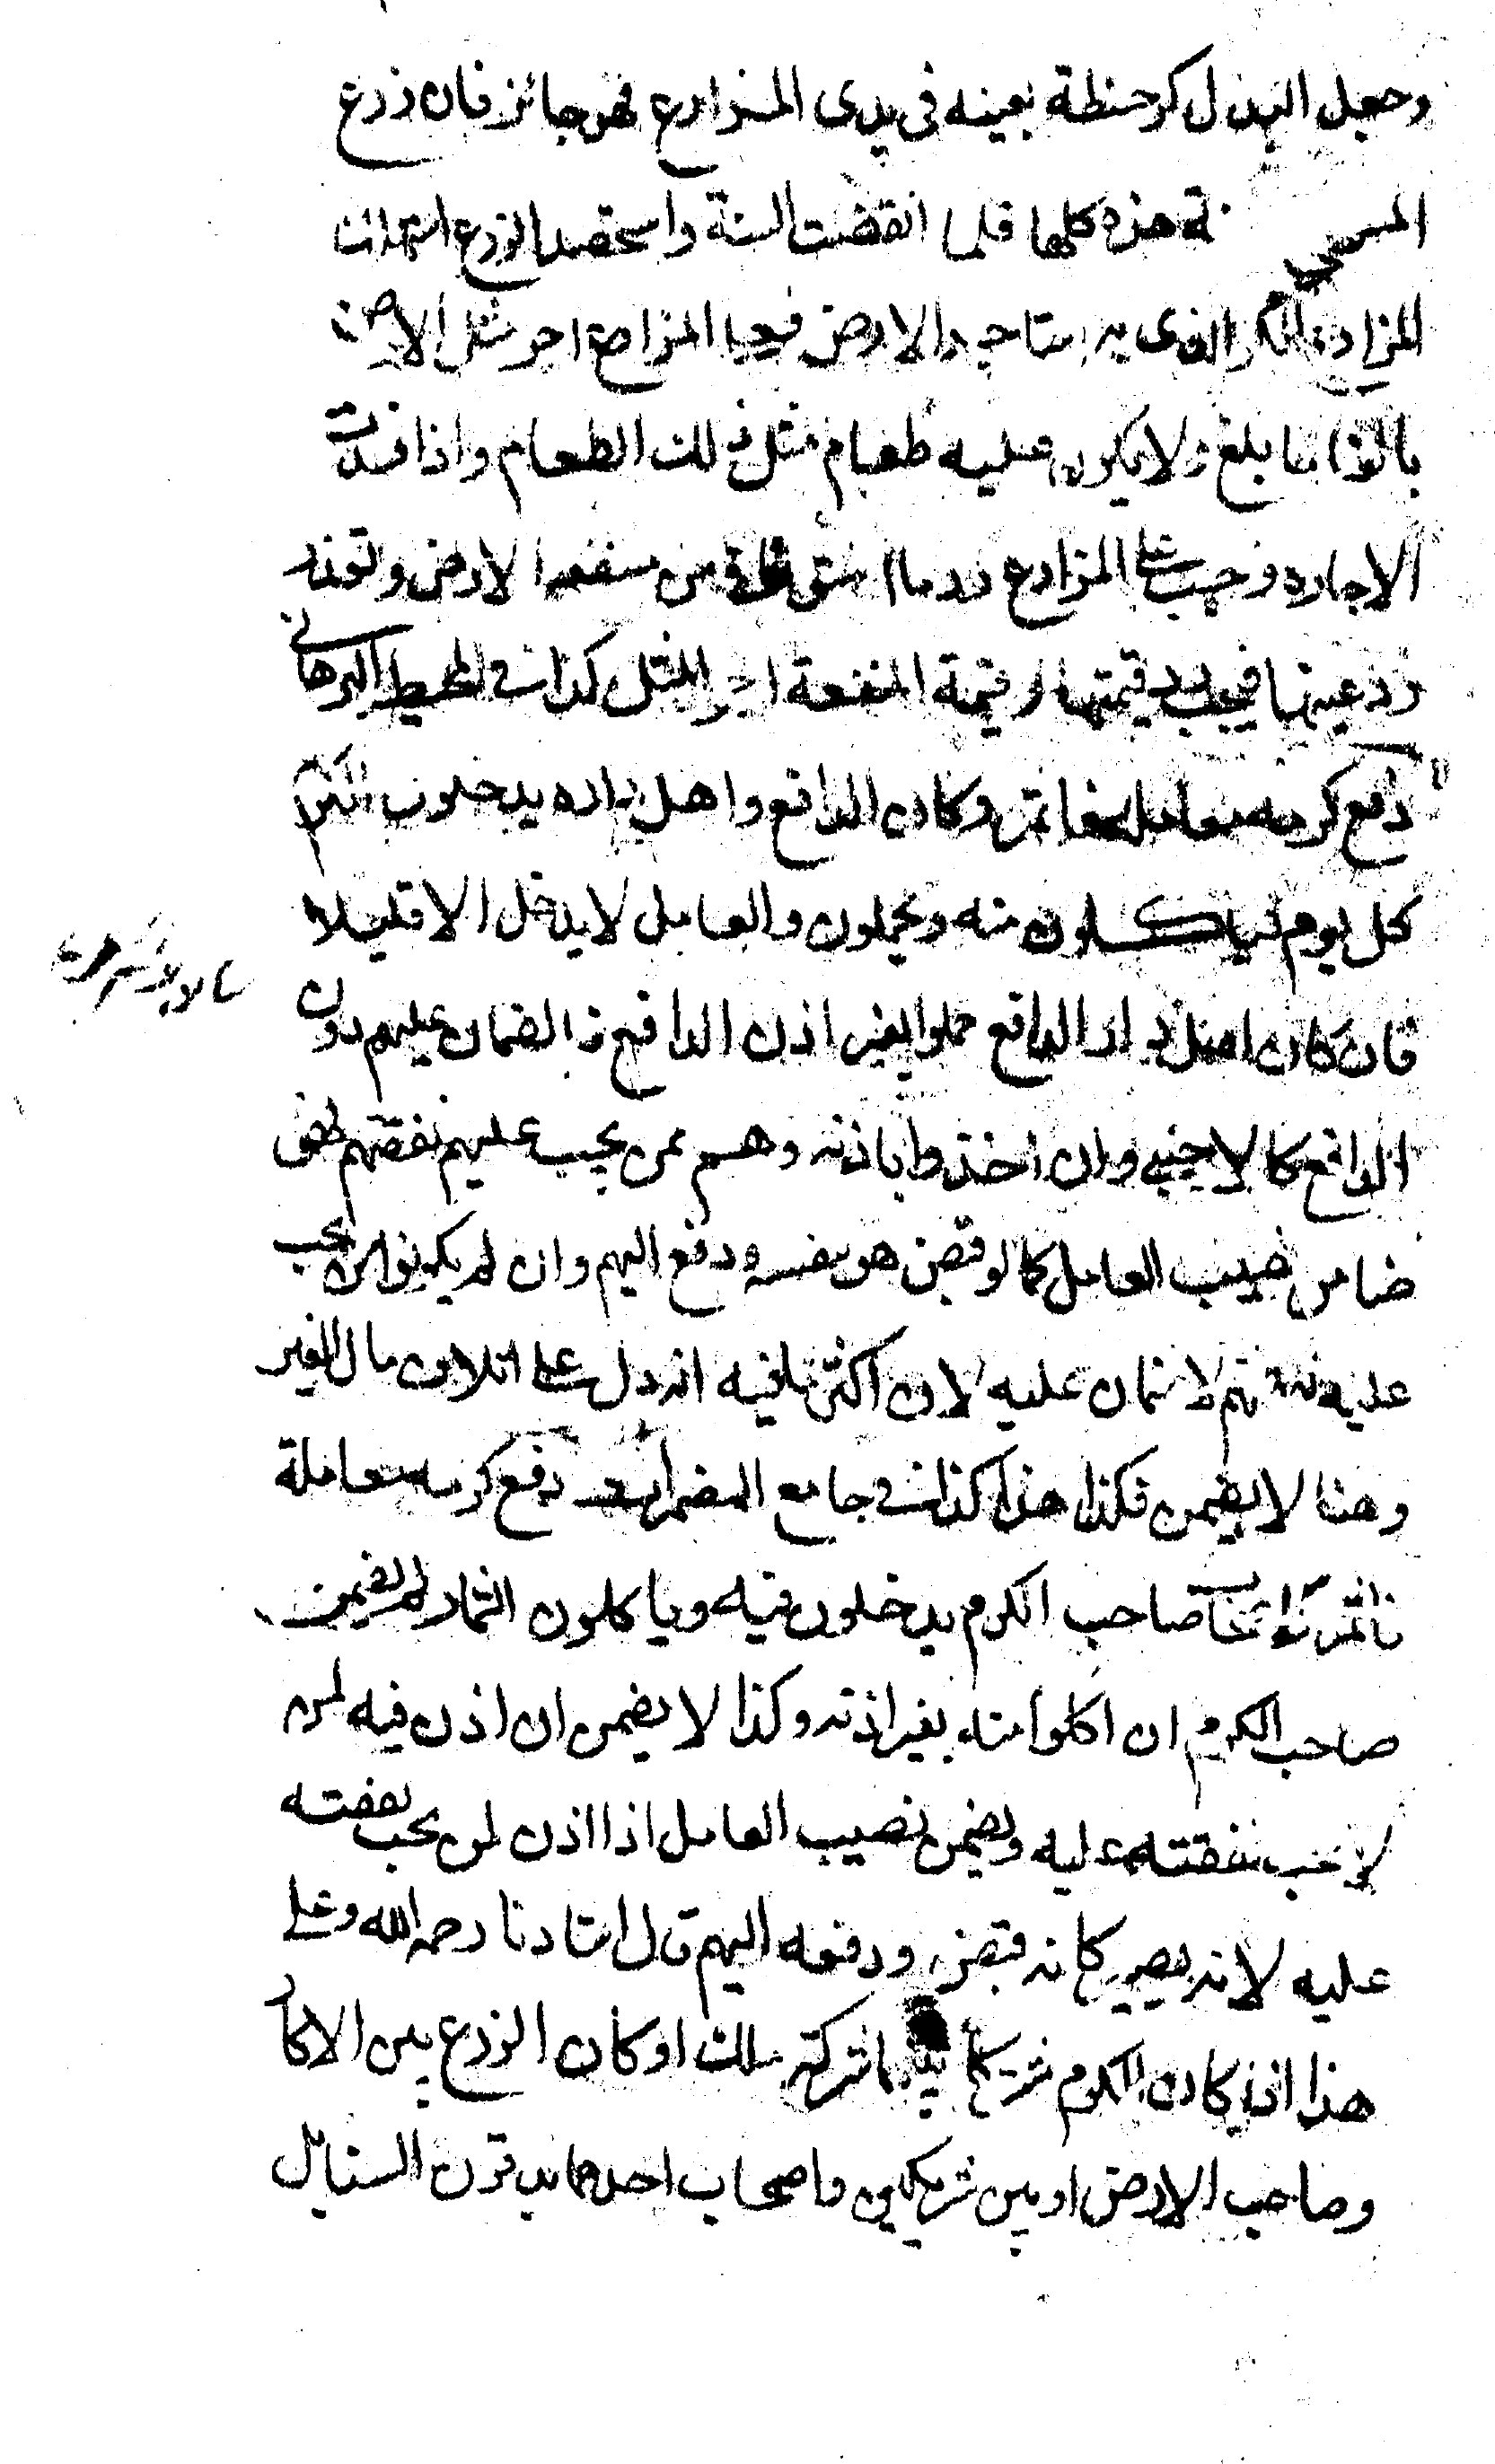 وجعل البدل كر حنطة بعينه فى يدى المزارع فهو جائز فان زرع
هذه كلها فلما انقضت السنة واستحصد الزرع استهلك
المزارع الكر الذى به استاجر الارض فعلى المزارع اجر مثل الارض
بالغا ما بلغ ولا يكون عليه طعام مثل ذلك الطعام واذا فسدت
الاجاره وجب على المزارع رد ما من منفعه الارض وتعذر
رد عينها فيجب رد قيمتها وقيمة المنفعة اجر المثل كذا فى المحيط البرهانى
دفع كرمه معاملة فاثمر وكان الدافع واهل داره يدخلون الكرم
كل يوم فياكلون منه ويحملون والعامل لا يدخل الا قليلا
فان كان اهل دار الدافع حملوا بغير اذن الدافع فالضمان عليهم دون
الدافع كالاجنبى وان اخذوا باذنه وهم ممن يجب عليهم نفقتهم فهو
ضامن نصيب العامل كما لو قبض هو بنفسه ودفع اليهم وان لم يكونوا ممن يجب
عليه نفقتهم لا ضمان عليه لان اكثر ما فيه انه دل على اتلاف مال الغير
وهنا لا يضمن فكذا هذا كذا فى جامع المضمرات دفع كرمه معاملة
فاثمر صاحب الكرم يدخلون فيه وياكلون الثمار لم يضمن
صاحب الكرم ان اكلوا منه بغير اذنه وكذا لا يضمن ان اذن فيه لمن
لا تجب نفقته عليه ويضمن نصيب العامل اذا اذن لمن يجب نفقته
عليه لانه يصير كانه قبضه ودفعه اليهم قال استادنا رحمه الله وعلى
هذا اذا كان الكرم شركة ملك او كان الزرع بين الاكار
وصاحب الارض او بين شريكين واصحاب احدهما يدقون السنابل